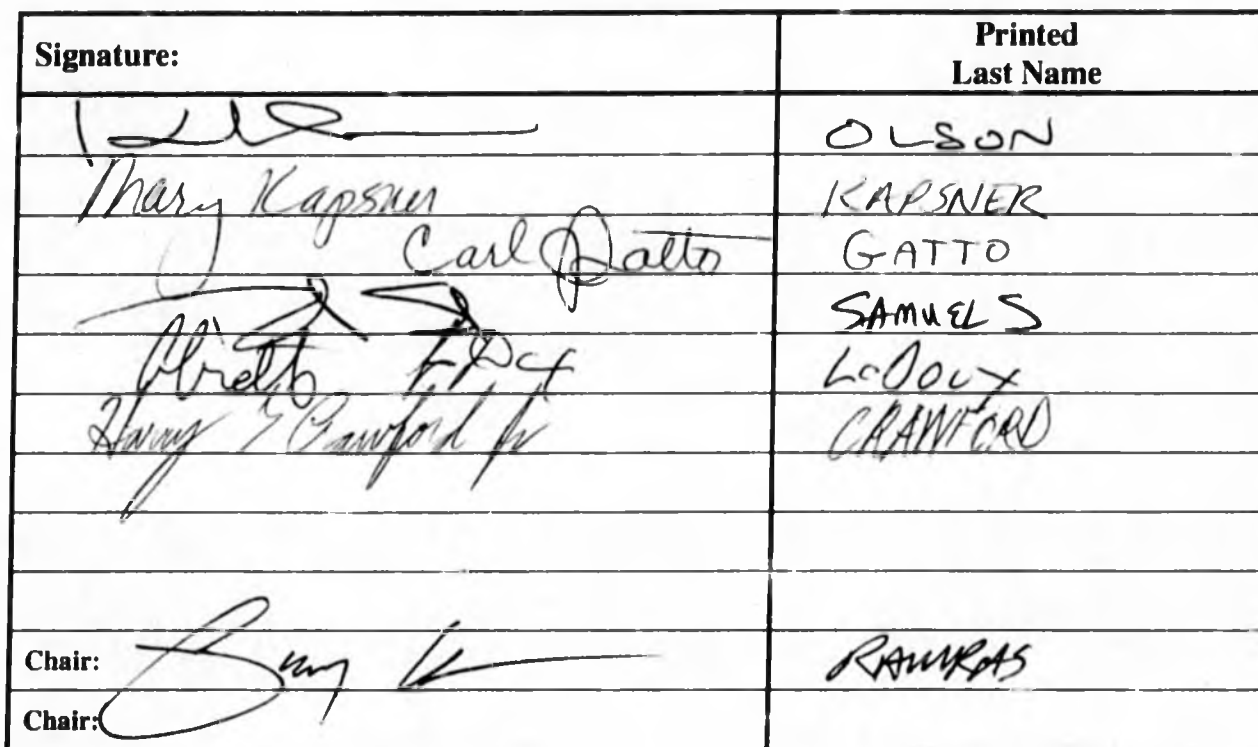 Signature: Printed Last Name
OLSON
Mary Kapsner KAPSNER
Carl Gatto GATTO
SAMUELS
LeDoux
Harry E Crawford Jr CRAWFORD
Chair: RAMRAS
Chair: